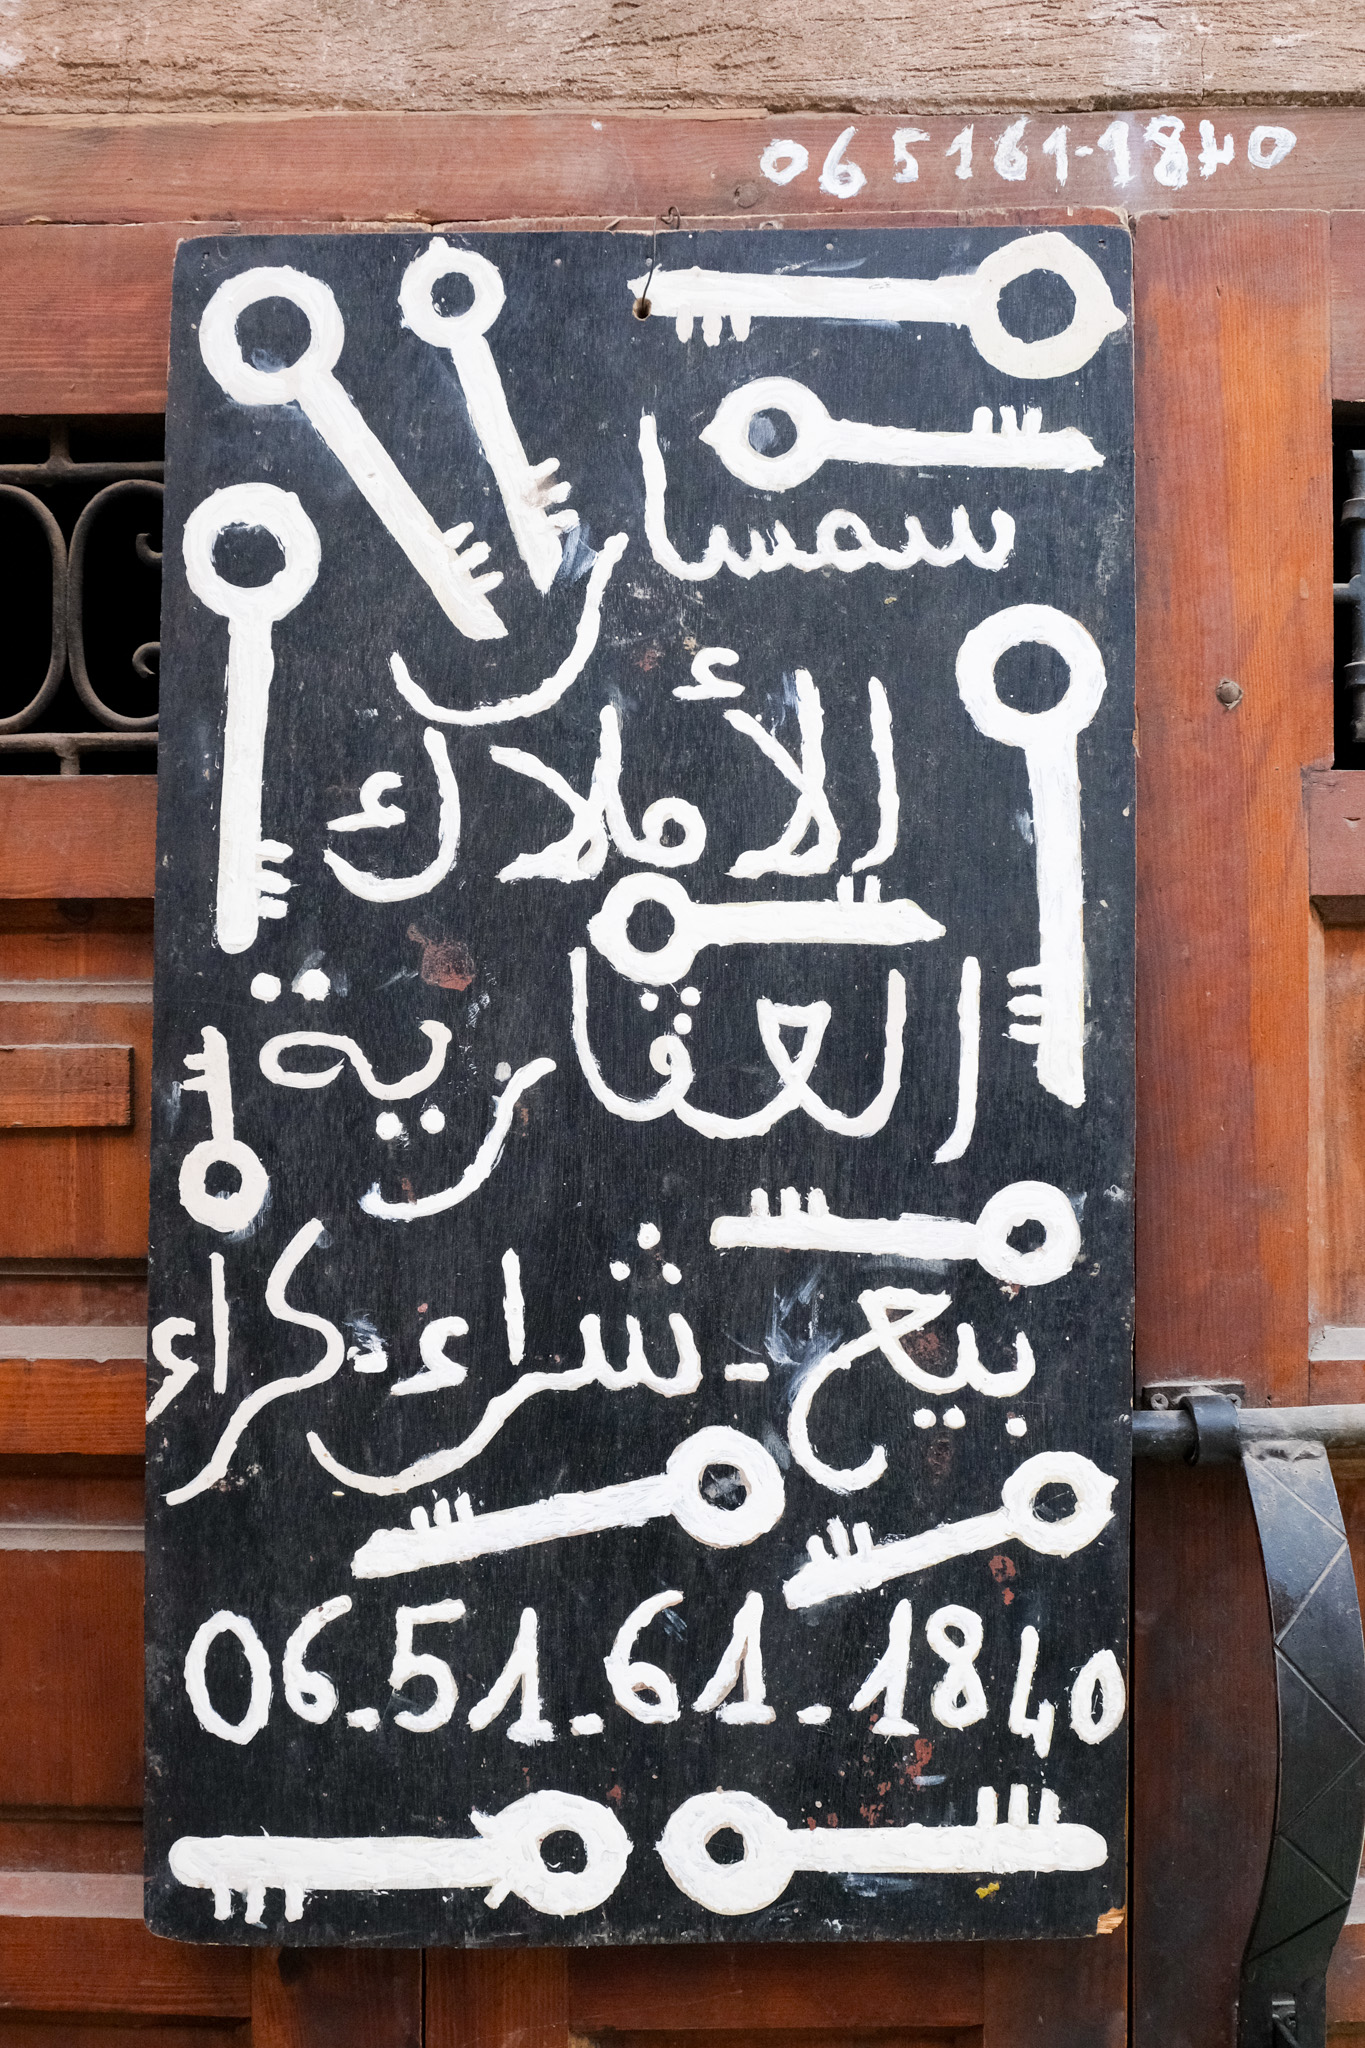 065161-1840
سمسار
الأملاك
العقارية
بيع - شراء - كراء
06-51-61-1840